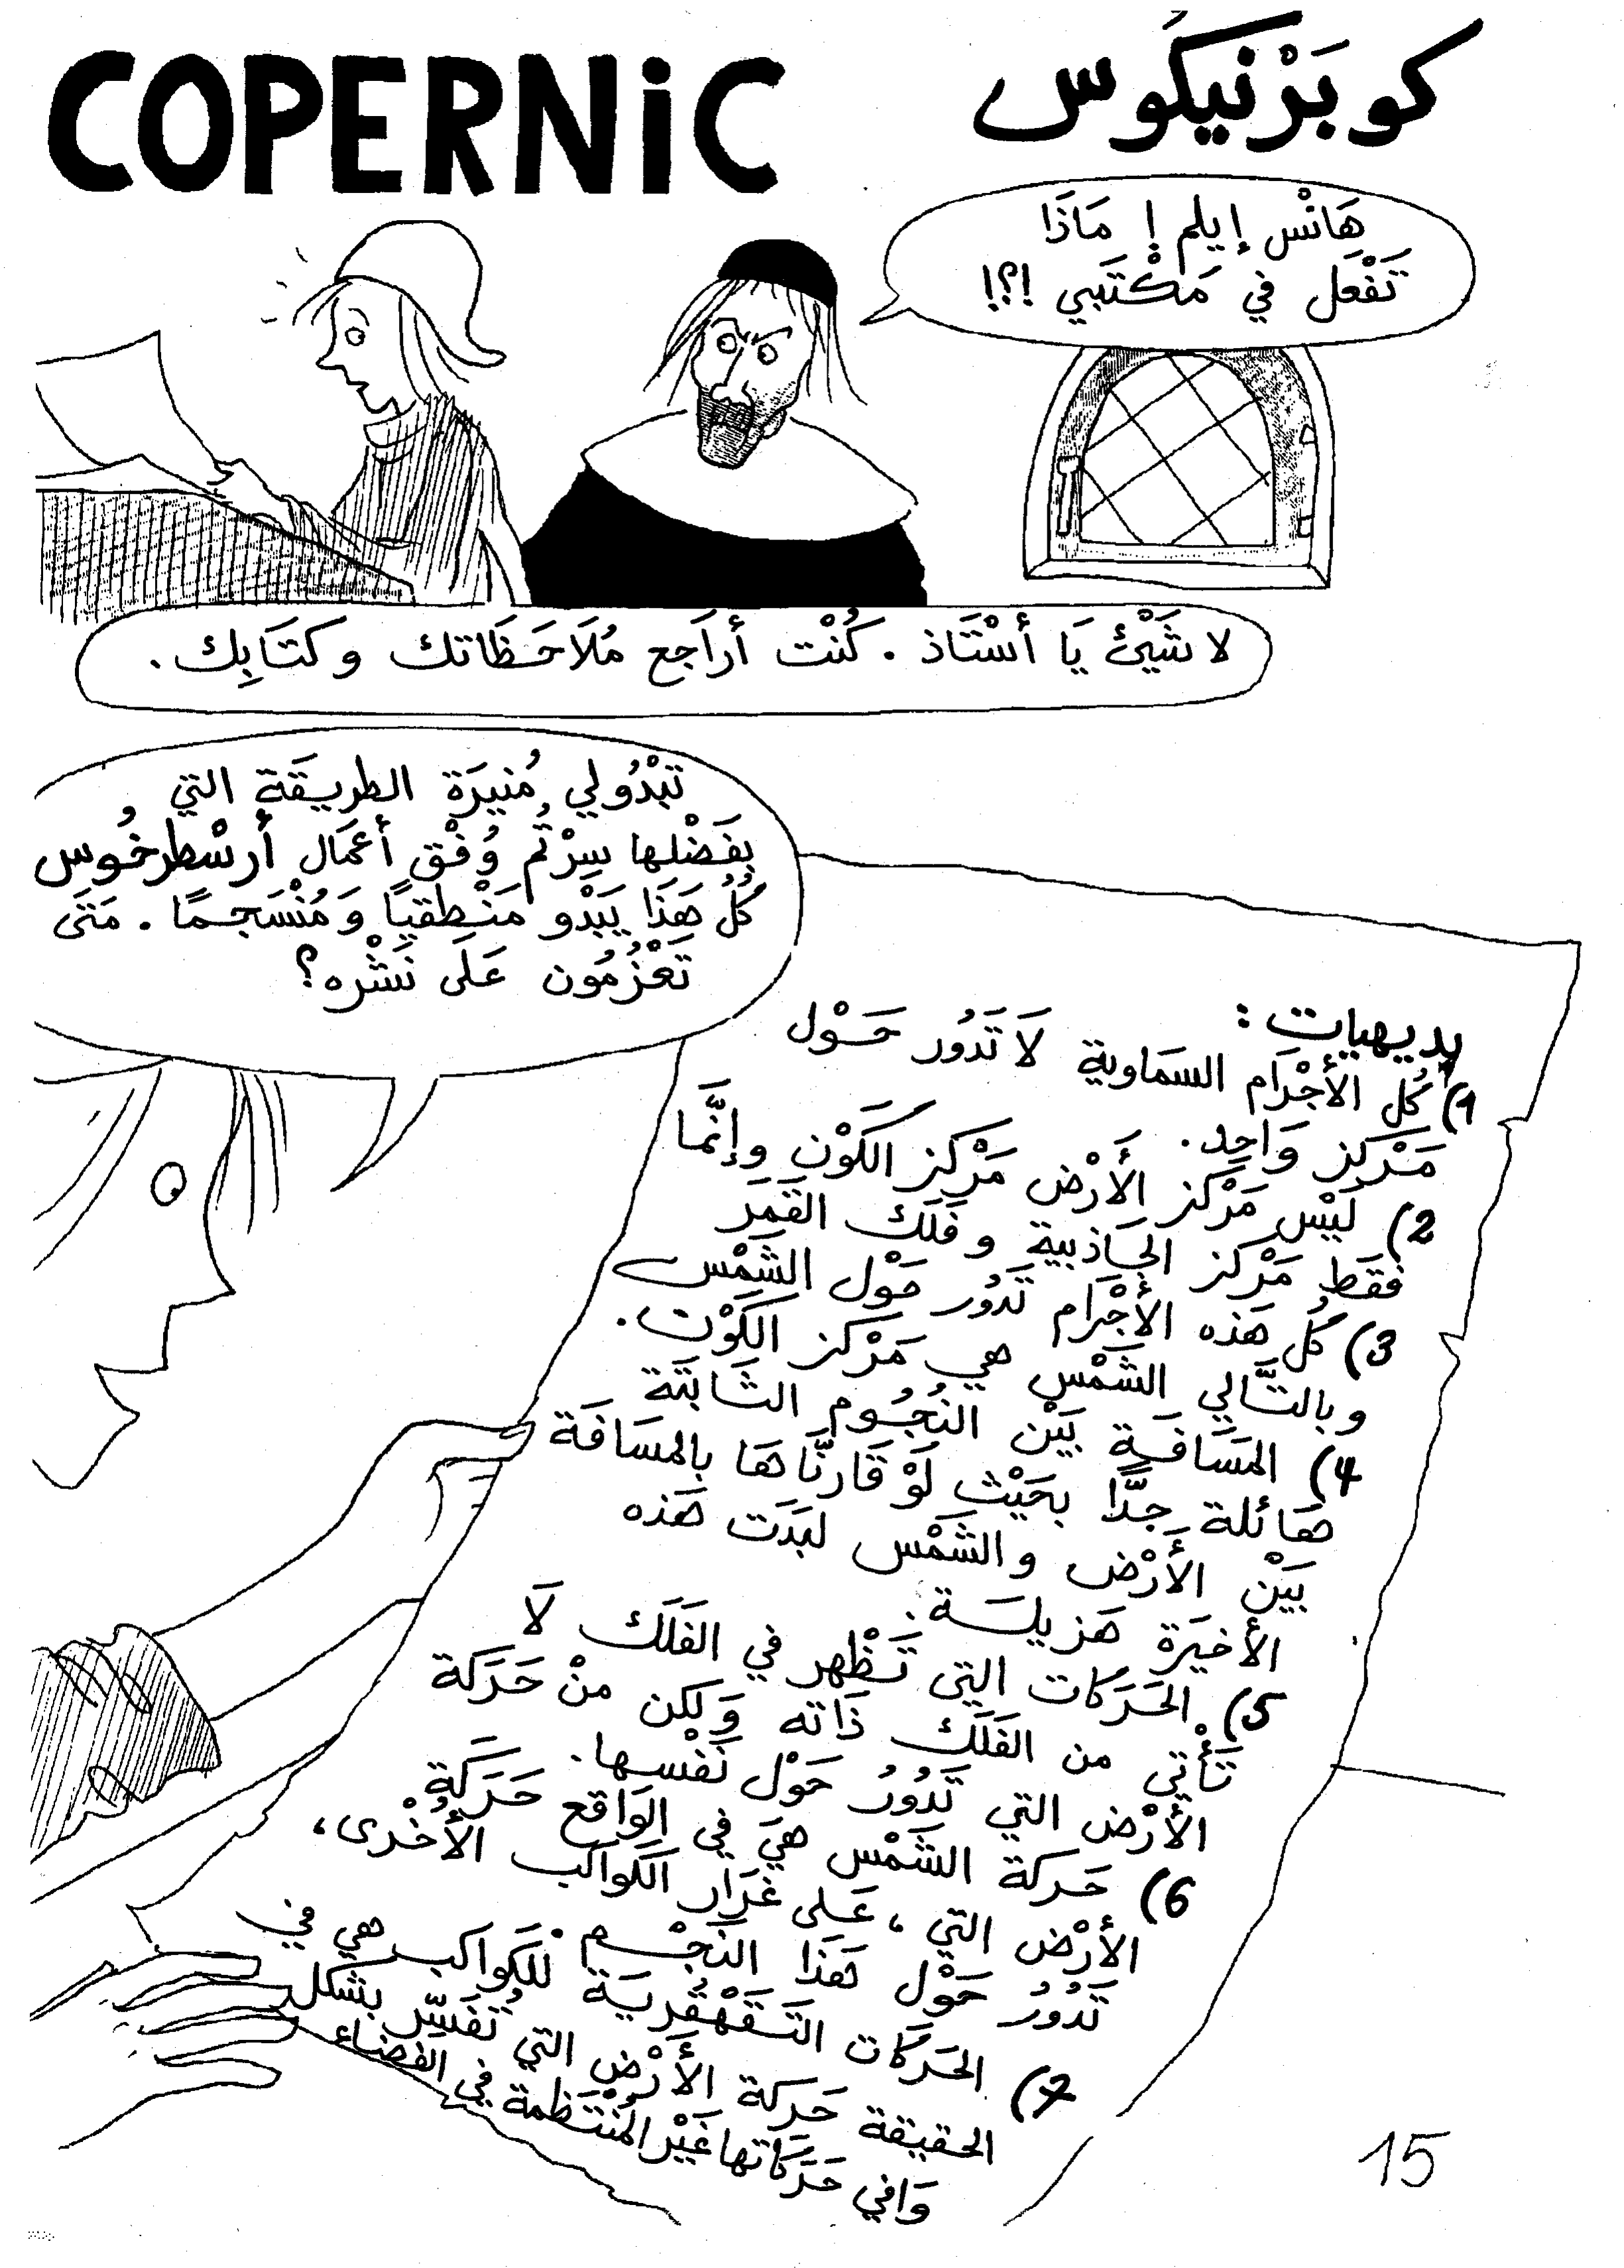 COPERNiC
كوبَرْنيكُوس
هَانْس إيلم ! مَاذَا
تَفْعَل في مَكْتَبي !؟!
لا شَيْئ يَا أسْتَاذ . كُنْت أرَاجع مُلَاحَظَاتك وكتَابِك .
تَبْدُولي مُنيرَة الطريقَة التي
بفَضْلها سِرْتُم وُفْق أعْمَال أرسْطرخُوس
كُلُ هَذَا يَبْدو مَنْطقيًا وَمُنْسَجمًا . مَتَى
تَعْزُمُون عَلَى نَشْره؟
بديهيات :
1) كُل الأجْرَام السمَاوية لَا تَدُور حَوْل
مَرْكز وَاحد.
2) لَيْس مَرْكز الأَرْض مَرْكز الكَوْن وإنَّما
فقَط مَرْكز الجَاذبية وفَلَك القَمَر
3) كُل هَذه الأجْرَام تَدُور حَوْل الشَمْس
وبالتَّالي الشَمْس هي مَرْكز الكَوْن.
4) المَسَافَة بَيْن النُجُوم الثَابتَة
هَائلة جدًّا بحَيْث لَوْ قَارنَّاهَا بالمسَافَة
بَيْن الأَرْض والشَمْس لبَدَت هَذه
الأخيَرة هَزيلَة.
5) الحَرَكَات التي تَظْهر في الفَلَك لَا
تَأْتي من الفَلَك ذَاته وَلكن منْ حَرَكة
الأَرْض التي تَدُورُ حَوْل نَفْسها.
6) حَركة الشَمْس هيَ في الوَاقع حَرَكَة
الأَرْض التي ، عَلى غرَار الكَواكب الأُخْرى،
تَدُورُ حَوْل هَذَا النَجْم.
7) الحَرَكَات التَقَهْقُريَة للكَواكب هي في
الحقيقة حَركة الأَرْض التي تُفَسّر بشَكل
وَافي حَرَكَاتها غَيْر المُنْتَظمة في الفَضَاء
15